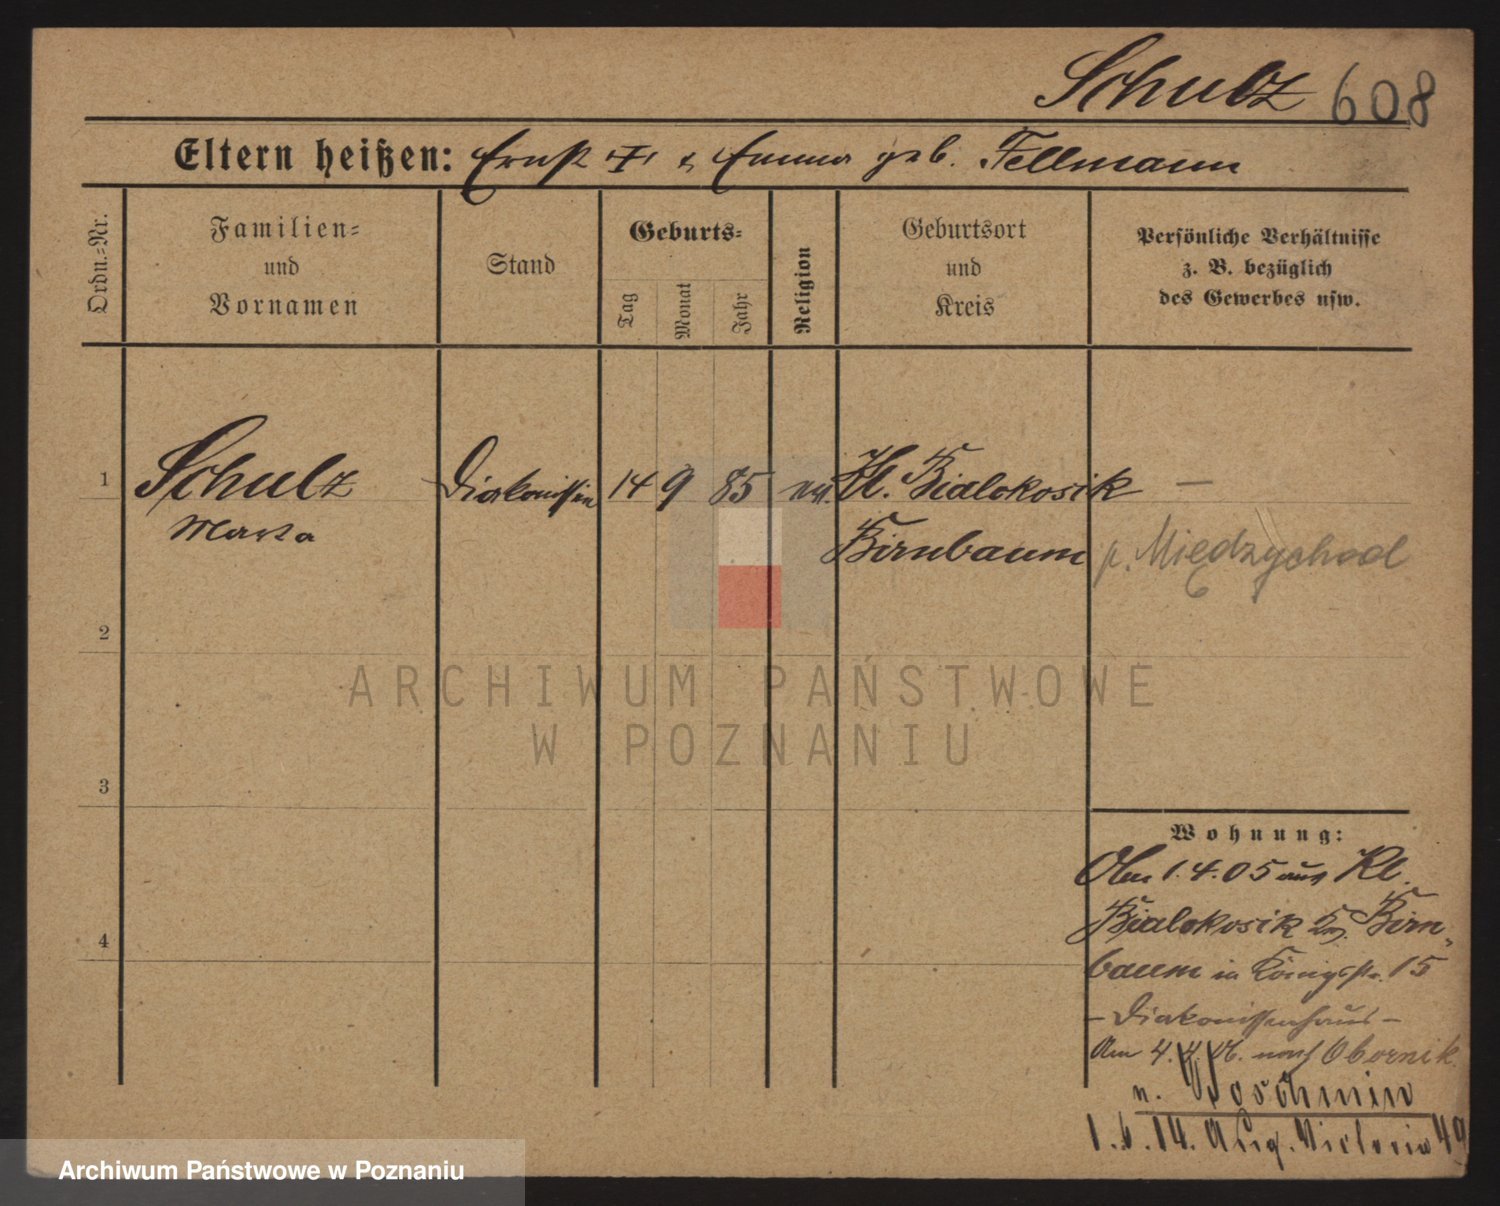 Schulz 608
Eltern heißen: Ernst † & Emma geb. Fellmann
Ordn.=Nr.
Familien=
und
Vornamen
Stand
Geburts=
Tag
Monat
Jahr
Religion
Geburtsort
und
Kreis
Persönliche Verhältnisse
z. B. bezüglich
des Gewerbes usw.
1 Schulz Diakonissin 14 9 85 ev. Kl. Bialokosik —
Marta Birnbaum p. Międzychod
2
3
4
Wohnung:
Am 1.4.05 aus Kl.
Bialokosik Birn-
baum in Königsstr. 15
— Diakonissenhaus —
Am 4. 4. 06. nach Obornik
n. Koschmin
1. 6. 14. Aug. Victoria 49
ARCHIWUM PAŃSTWOWE
W POZNANIU
Archiwum Państwowe w Poznaniu